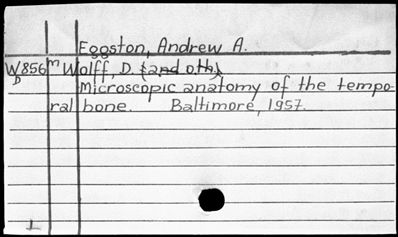 Eggston, Andrew A.
W856m Wolff, D. {and oth.}
D
Microscopic anatomy of the tempo-
ral bone. Baltimore, 1957.